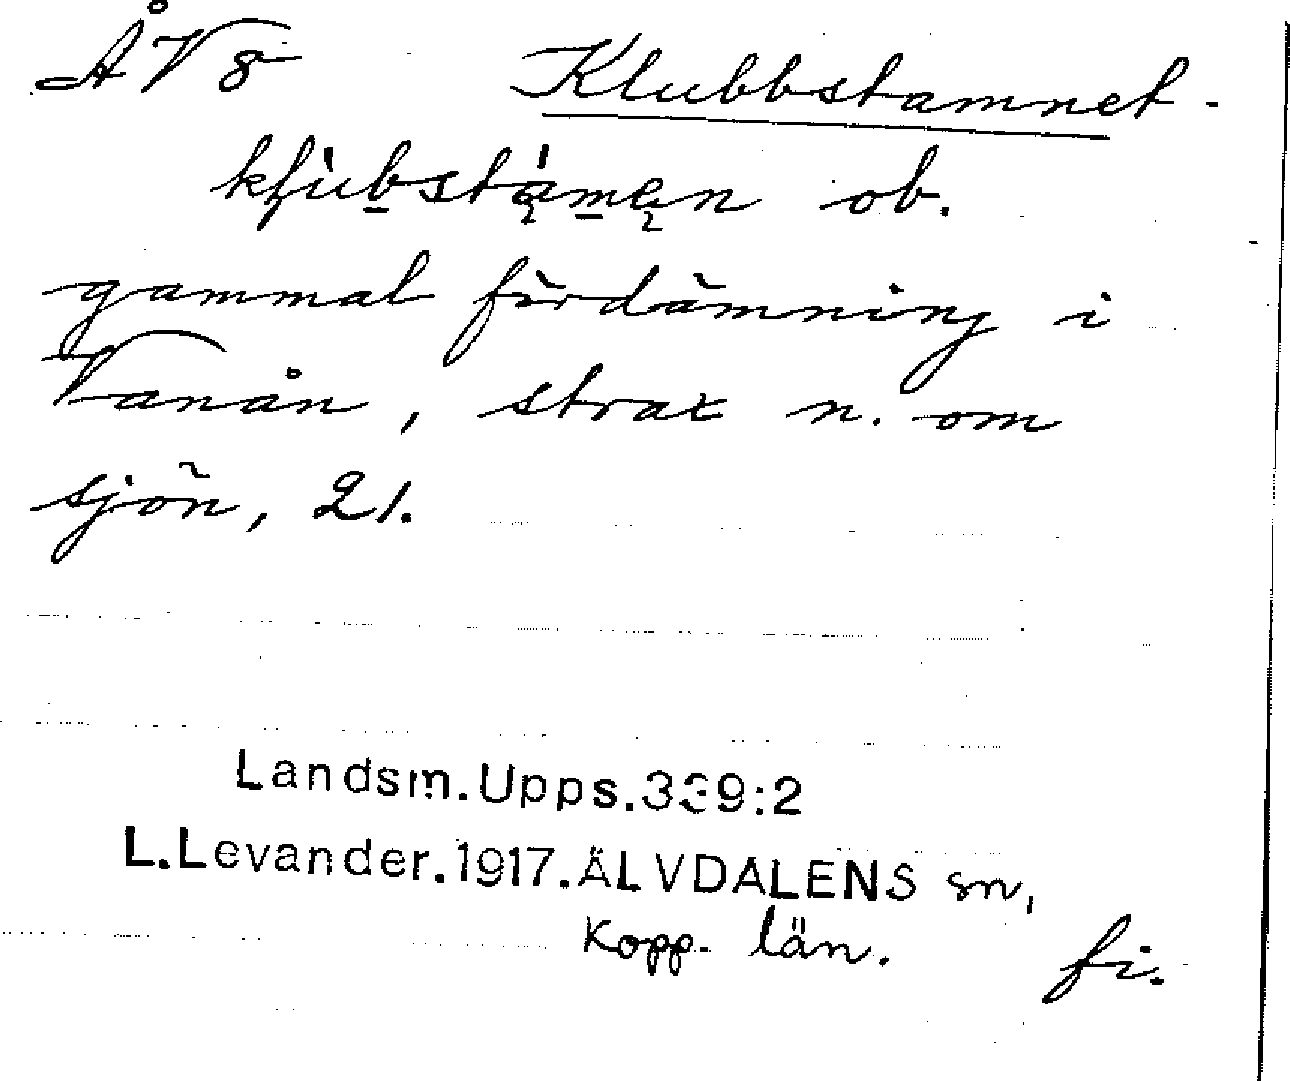 ÅV8 Klubbstamnet.
kłùbstą̀męn ob.
gammal fördämning i
Vanån, strax n. om
sjön, 21.
Landsm.Upps.339:2
L.Levander.1917.ÄLVDALENS sn,
Kopp. län.
fi.